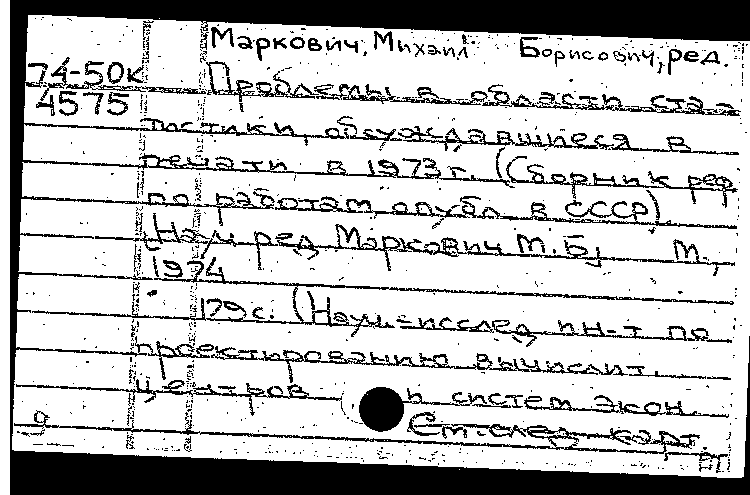 Маркович, Михаил Борисович, ред.
74-50к
4575
Проблемы в области ста-
тистики, обсуждавшиеся в
печати в 1973 г. (Сборник реф.
по работам опубл. в СССР).
Науч. ред. Маркович М.Б. М.,
1974
179 с. (Науч.-исслед. ин-т по
проектированию вычислит.
центров и систем экон.
См. след. карт.
9